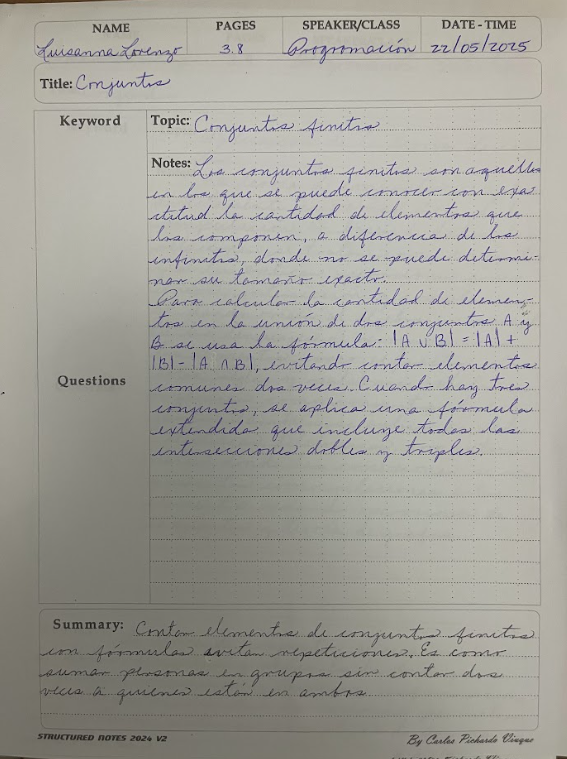 NAME PAGES SPEAKER/CLASS DATE - TIME
Luisanna Lorenzo 3.8 Programación 22/05/2025
Title: Conjuntos
Keyword
Topic: Conjuntos finitos
Notes: Los conjuntos finitos son aquellos
en los que se puede conocer con exa-
ctitud la cantidad de elementos que
los componen, a diferencia de los
infinitos, donde no se puede determi-
nar su tamaño exacto.
Para calcular la cantidad de elemen-
tos en la unión de dos conjuntos A y
B se usa la fórmula: |A ∪ B| = |A| +
|B| - |A ∩ B|, evitando contar elementos
comunes dos veces. Cuando hay tres
conjuntos, se aplica una fórmula
extendida que incluye todas las
intersecciones dobles y triples.
Questions
Summary: Contar elementos de conjuntos finitos
con fórmulas evitan repeticiones. Es como
sumar personas en grupos sin contar dos
veces a quienes están en ambos.
STRUCTURED NOTES 2024 V2 By Carlos Pichardo Viuque